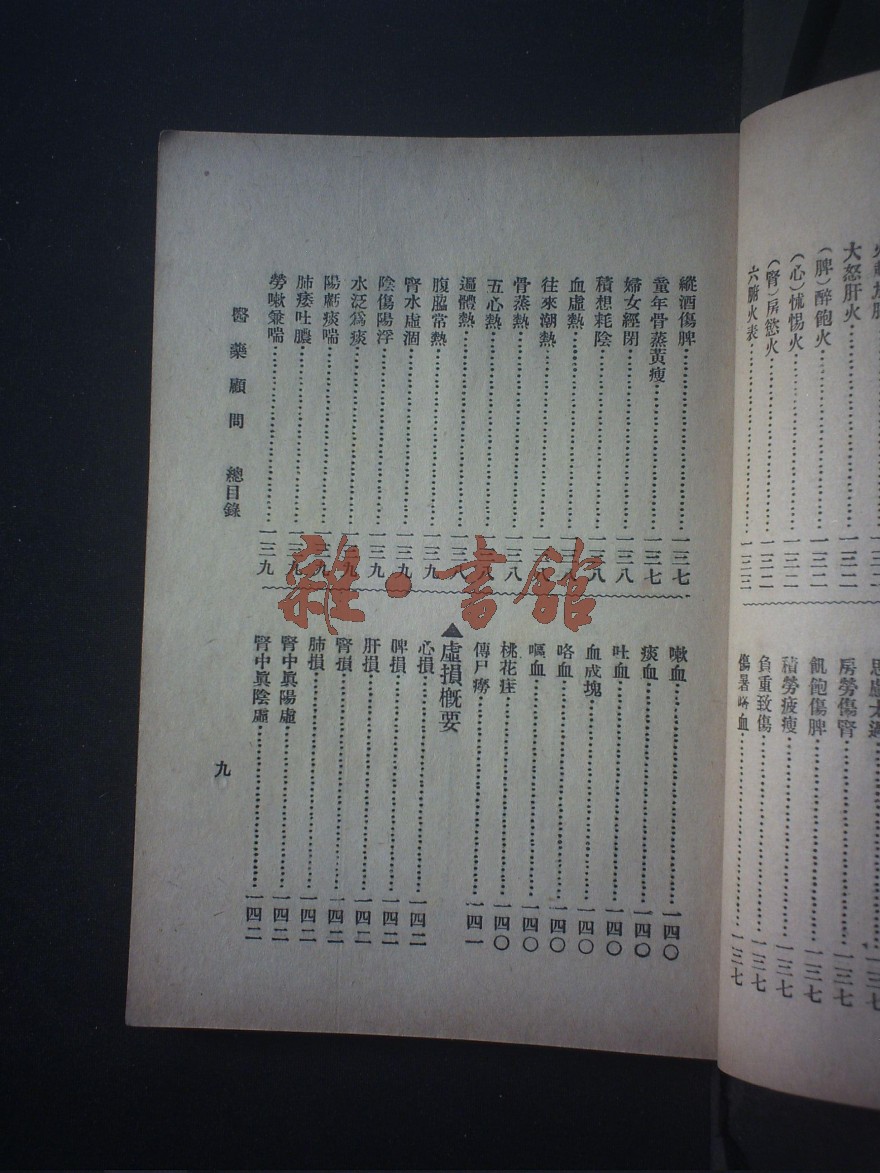 大怒肝火……一三二
（脾）醉飽火……一三二
（心）怵惕火……一三二
（腎）房慾火……一三二
六腑火表……一三三
房勞傷腎……一三七
飢飽傷脾……一三七
積勞疲瘦……一三七
負重致傷……一三七
傷暑咯血……一三七
縱酒傷脾……一三七
童年骨蒸黃瘦……一三七
婦女經閉……一三八
積想耗陰……一三八
血虛熱……一三八
往來潮熱……一三八
骨蒸熱……一三八
五心熱……一三八
遍體熱……一三八
腹脇常熱……一三九
腎水虛涸……一三九
陰傷陽浮……一三九
水泛爲痰……一三九
陽虧痰喘……一三九
肺痿吐膿……一三九
勞嗽兼喘……一三九
嗽血……一四〇
痰血……一四〇
吐血……一四〇
血成塊……一四〇
咯血……一四〇
嘔血……一四〇
桃花疰……一四〇
傳尸癆……一四一
▲虛損概要
心損……一四二
脾損……一四二
肝損……一四二
腎損……一四二
肺損……一四二
腎中眞陽虛……一四二
腎中眞陰虛……一四二
醫藥顧問　總目錄
九
雜·書館